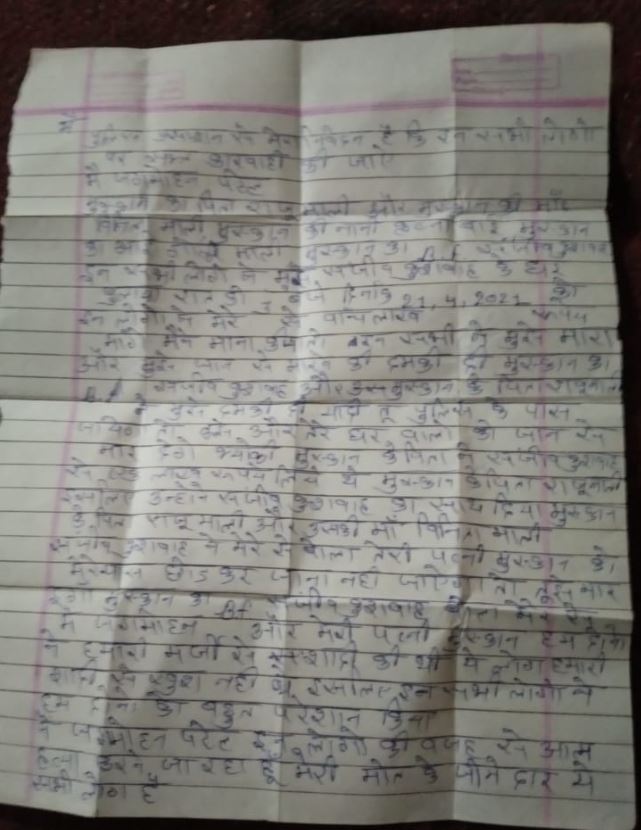 पुलिस प्रशासन से मेरा निवेदन है कि इन सभी लोगो
पर सख्त कारवाही की जाए
में जगमोहन पटेल
मुस्कान का पिता राजू माली और मुस्कान की माँ
माली मुस्कान का नाना मुस्कान
का माली मुस्कान का संजीव कुशवाह
इन सभी लोगो ने मुझे संजीव कुशवाह के घर
बुलाया रात को बजे दिनांक 21,4,2021 को
इन लोगो ने मेरे से पांच लाख रुपय
मांगे मैने माना किया तो इन सभी ने मुझे मारा
और मुझे जान से मारने की धमकी दी मुस्कान का
संजीव कुशवाह और मुस्कान के पिता राजू माली
ने मुझे धमकी दी तू पुलिस के पास
जायेगा तो तुझे और तेरे घर वालो को जान से
मार देंगे क्योकी मुस्कान के पिता ने संजीव कुशवाह
से लाख रुपय लिये थे मुस्कान के पिता राजू माली
इसलिए उन्होने संजीव कुशवाह का साथ दिया मुस्कान
के पिता राजू माली और उसकी माँ माली
संजीव कुशवाह ने मेरे से बोला तेरी पत्नी मुस्कान को
छोड कर जाना नही तो तुझे मार
दूंगा मुस्कान का BF संजीव कुशवाह बोला मेरे से
में जगमोहन और मेरी पत्नी मुस्कान हम दोनो
ने हमारी मर्जी से शादी की थी ये लोग हमारी
शादी से खुश नही थे इसलिए इन सभी लोगो ने
हम दोनो को बहुत परेशान किया
में जगमोहन पटेल इन लोगो की वजह से आत्म
हत्या करने जा रहा हूँ मेरी मौत के ये
सभी लोग है